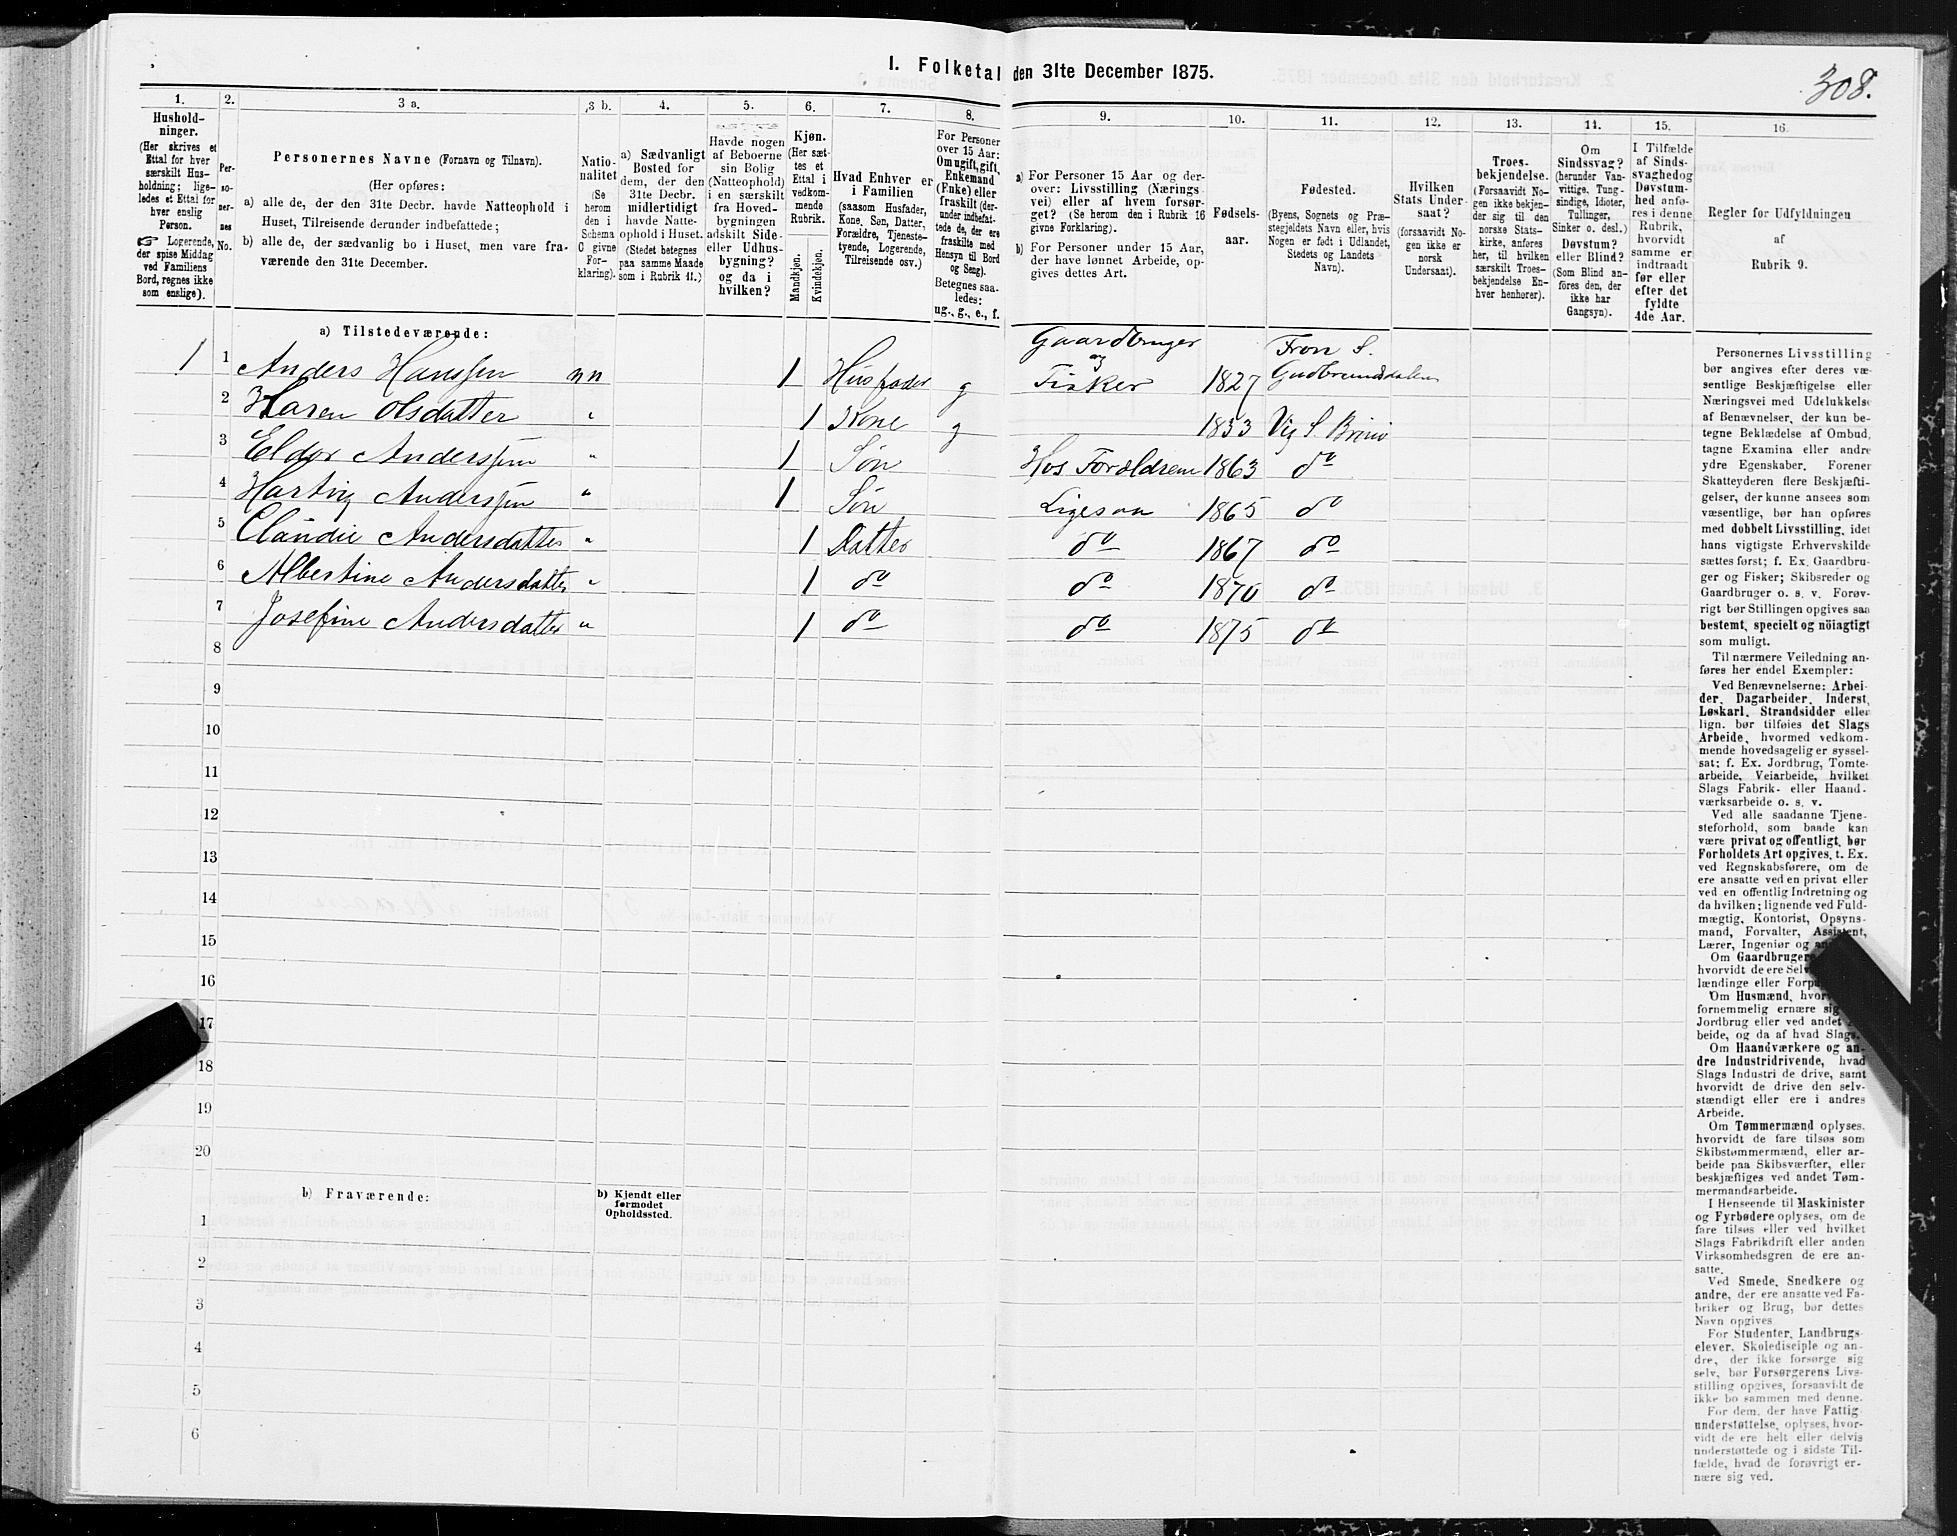 I. Folketal den 31te December 1875.
308.
1.
Hushold-
ninger.
(Her skrives et
Ettal for hver
særskilt Hus-
holdning; lige-
ledes et Ettal for
hver enslig
Person.
☞ Logerende,
der spise Middag
ved Familiens
Bord, regnes ikke
som enslige).
2.
Per-
so-
ner-
nes
No.
3 a.
Personernes Navne (Fornavn og Tilnavn).
(Her opføres:
a) alle de, der den 31te Decbr. havde Natteophold i
Huset, Tilreisende derunder indbefattede;
b) alle de, der sædvanlig bo i Huset, men vare fra-
værende den 31te December.
3 b.
Natio-
nalitet
(Se
herom
den i
Schema
C givne
For-
klaring).
4.
a) Sædvanligt
Bosted for
dem, der den
31te Decbr.
midlertidigt
havde Natte-
ophold i Huset.
(Stedet betegnes
paa samme Maade
som i Rubrik 11.)
5.
Havde nogen
af Beboerne
sin Bolig
(Natteophold)
i en særskilt
fra Hoved-
bygningen
adskilt Side-
eller Udhus-
bygning?
og da i
hvilken?
6.
Kjøn.
(Her sæt-
tes et
Ettal i
vedkom-
mende
Rubrik.
Mandkjøn.
Kvindekjøn.
7.
Hvad Enhver er
i Familien
(saasom Husfader,
Kone, Søn, Datter,
Forældre, Tjeneste-
tyende, Logerende,
Tilreisende osv.)
8.
For Personer
over 15 Aar:
Om ugift, gift,
Enkemand
(Enke) eller
fraskilt (der-
under indbefat-
tede de, der ere
fraskilte med
Hensyn til Bord
og Seng).
Betegnes saa-
ledes:
ug., g., e., f.
9.
a) For Personer 15 Aar og der-
over: Livsstilling (Nærings-
vei) eller af hvem forsør-
get? (Se herom den i Rubrik 16
givne Forklaring).
b) For Personer under 15 Aar,
der have lønnet Arbeide, op-
gives dettes Art.
10.
Fødsels-
aar.
11.
Fødested.
(Byens, Sognets og Præ-
stegjeldets Navn eller, hvis
Nogen er født i Udlandet,
Stedets og Landets
Navn).
12.
Hvilken
Stats Under-
saat?
(forsaavidt No-
gen ikke er
norsk
Undersaat).
13.
Troes-
bekjendelse.
(Forsaavidt No-
gen ikke bekjen-
der sig til den
norske Stats-
kirke, anføres
her, til hvilken
særskilt Troes-
bekjendelse En-
hver henhører).
14.
Om
Sindssvag?
(herunder Van-
vittige, Tung-
sindige, Idioter,
Tullinger,
Sinker o. desl.)
Døvstum?
eller Blind?
(Som Blind an-
føres den, der
ikke har
Gangsyn).
15.
I Tilfælde
af Sinds-
svaghed og
Døvstum-
hed anfø-
res i denne
Rubrik,
hvorvidt
samme er
indtraadt
før eller
efter det
fyldte
4de Aar.
16.
Regler for Udfyldningen
af
Rubrik 9.
a) Tilstedeværende:
1 1 Anders Hanssen nn 1 Husfader g Gaardbruger og Fisker 1827 Fron S. Gudbrandsdalen
2 Karen Olsdatter " 1 Kone g 1833 Vig S. Brønø
3 Eldor Anderssen " 1 Søn Hos Forældrene 1863 do
4 Hartvig Anderssen " 1 Søn Ligesaa 1865 do
5 Claudie Andersdatter " 1 Datter do 1867 do
6 Albertine Andersdatter " 1 do do 1870 do
7 Josefine Andersdatter " 1 do do 1875 do
8
9
10
11
12
13
14
15
16
17
18
19
20
b) Fraværende:
b) Kjendt eller
formodet
Opholdssted.
1
2
3
4
5
6
Personernes Livsstilling
bør angives efter deres væ-
sentlige Beskjæftigelse eller
Næringsvei med Udelukkelse
af Benævnelser, der kun be-
tegne Beklædelse af Ombud,
tagne Examina eller andre
ydre Egenskaber. Forener
Skatteyderen flere Beskjæfti-
gelser, der kunne ansees som
væsentlige, bør han opføres
med dobbelt Livsstilling, idet
hans vigtigste Erhvervskilde
sættes først; f. Ex. Gaardbru-
ger og Fisker; Skibsreder og
Gaardbruger o. s. v. Forøv-
rigt bør Stillingen opgives saa
bestemt, specielt og nöiagtigt
som muligt.
Til nærmere Veiledning an-
føres her endel Exempler:
Ved Benævnelserne: Arbei-
der, Dagarbeider, Inderst,
Løskarl, Strandsidder eller
lign. bør tilføies det Slags
Arbeide, hvormed vedkom-
mende hovedsagelig er syssel-
sat; f. Ex. Jordbrug, Tomte-
arbeide, Veiarbeide, hvilket
Slags Fabrik- eller Haand-
værksarbeide o. s. v.
Ved alle saadanne Tjene-
steforhold, som baade kan
være privat og offentligt, bør
Forholdets Art opgives, t. Ex.
ved Regnskabsførere, om de
ere ansatte ved en privat eller
ved en offentlig Indretning og
da hvilken; lignende ved Fuld-
mægtig, Kontorist, Opsyns-
mand, Forvalter, Assistent,
Lærer, Ingeniør og
Om Gaardbrugere
hvorvidt de ere Selv
lændinge eller
Om Husmænd,
fornemmelig ernære
Jordbrug eller ved andet
beide, og da af hvad Slags.
Om Haandværkere og an-
dre Industridrivende, hvad
Slags Industri de drive, samt
hvorvidt de drive den selv-
stændigt eller ere i andres
Arbeide.
Om Tømmermænd oplyses,
hvorvidt de fare tilsøs som
Skibstømmermænd, eller ar-
beide paa Skibsværfter, eller
beskjæftiges ved andet Tøm-
mermandsarbeide.
I Henseende til Maskinister
og Fyrbødere oplyses, om de
fare tilsøs eller ved hvilket
Slags Fabrikdrift eller anden
Virksomhedsgren de ere an-
satte.
Ved Smede, Snedkere og
andre, der ere ansatte ved Fa-
briker og Brug, bør dettes
Navn opgives
For Studenter, Landbrugs-
elever, Skoledisciple og an-
dre, der ikke forsørge sig
selv, bør Forsørgerens Livs-
stilling opgives, forsaavidt de
ikke bo sammen med denne.
For dem, der have Fattig-
understøttelse, oplyses, hvor-
vidt de ere helt eller delvis
understøttede og i sidste Til-
fælde, hvad de forøvrigt er-
nære sig ved.